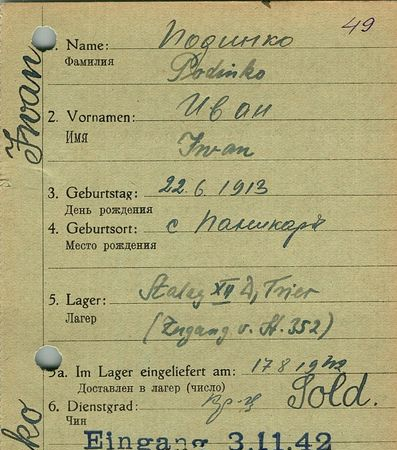 49
1. Name: Подинко
Фамилия Podinko
2. Vornamen: Иван
Имя Iwan
3. Geburtstag: 22.6.1913
День рождения
4. Geburtsort: с Паникары
Место рождения
5. Lager: Stalag XII D, Trier
Лагерь (Zugang v. St. 352)
5a. Im Lager eingeliefert am: 17 8 1942
Доставлен в лагерь (число)
6. Dienstgrad: кр-ц Sold.
Чин
Eingang 3.11.42
Iwan
ko